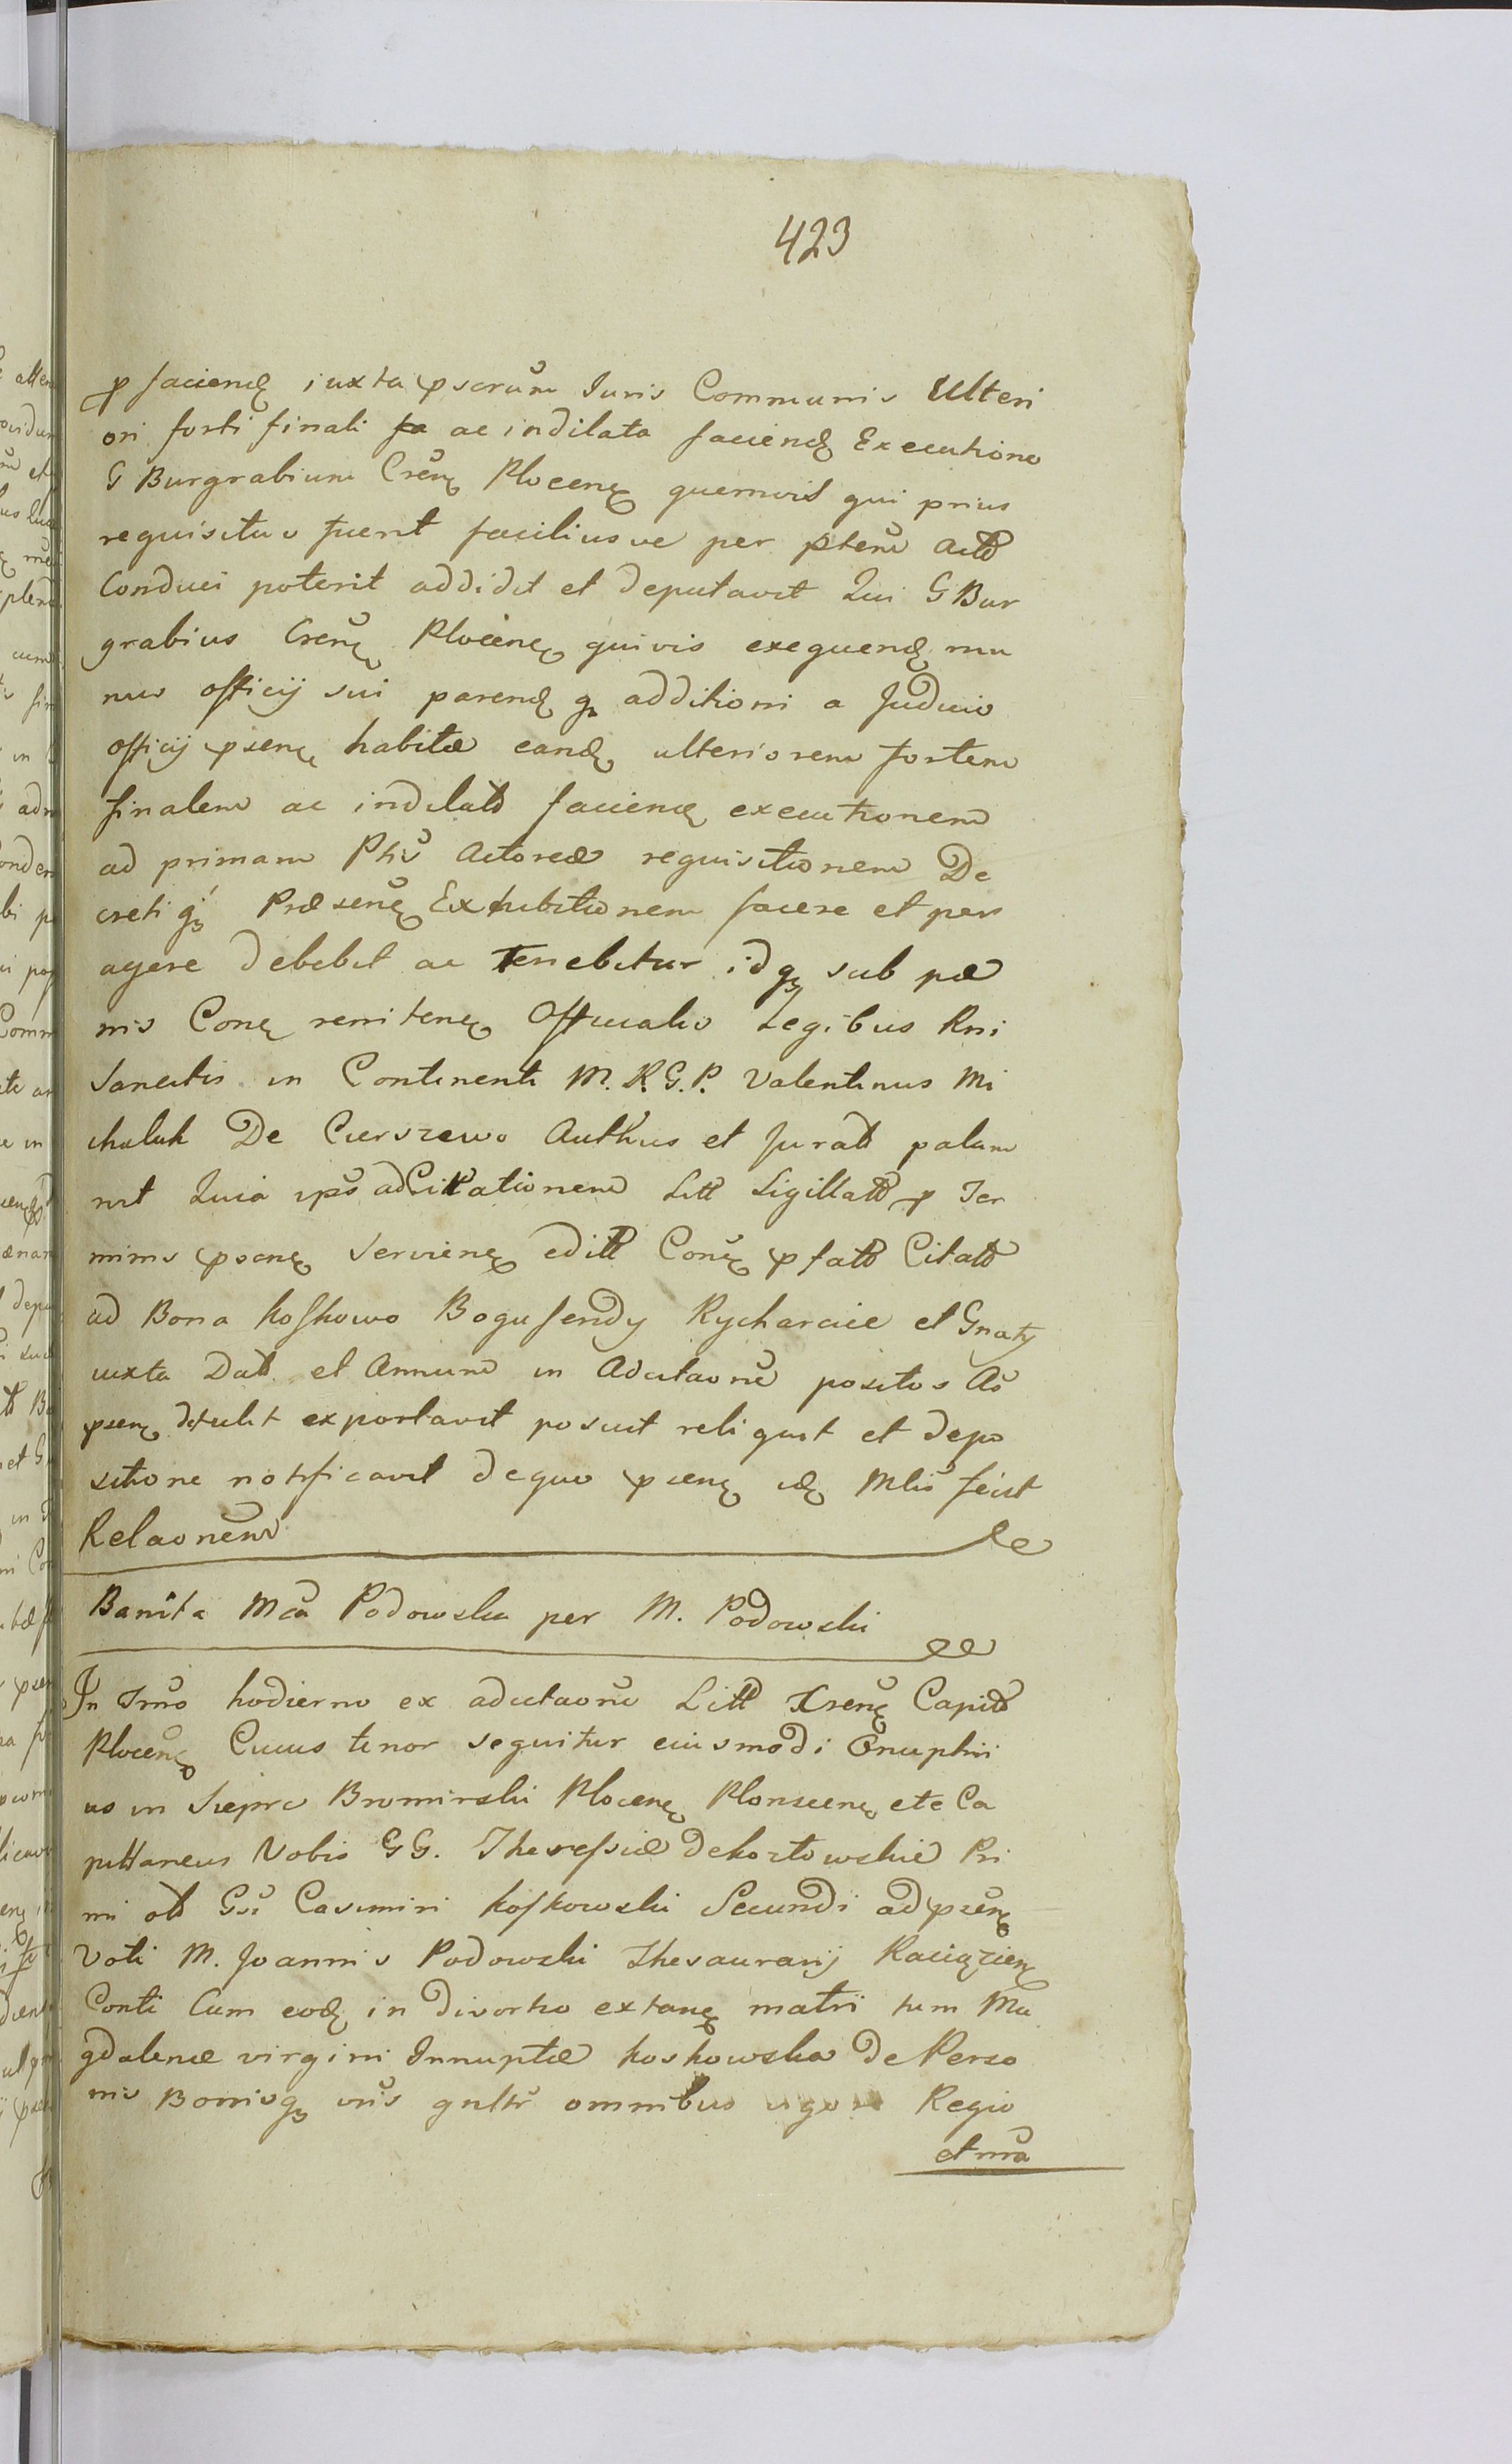 423
p faciend iuxta pscrum Iuris Communis Ulteri
ori forti finali ac indilata faciend Executione
G Burgrabium Cren Plocen quemvis qui prius
requisitus fuerit faciliusve per ptem Act
Conduci poterit addidit et deputavit Qui G Bur
grabius Cren Plocen quivis exequend mu
nus officij sui parend q additioni a Judicio
officij psen habitæ eand ulteriorem fortem
finalem ac indilat faciend executionem
ad primam Ptis Actoreæ requisitionem De
creti q Præsen Exhibitionem facere et per
agere debebit ac tenebitur idq sub pæ
nis Con reniten Officiales Legibus Rni
Sancitis in Continenti M. R. G. P. Valentinus Mi
chaluk De Cierszewo Authus et Jurat palam
rt Quia ips ad Citationem Litt Sigillat p Ter
minis psen Servien edit Con p fatt Citatt
ad Bona Koskowo Bogusendy Rycharcice et Gnaty
iuxta Dat et Annum in Adcitaone positos As
psen detulit exportavit posuit reliquit et depo
sitione notificavit dequo psen id Mlis fecit
Relaonem
Banita Mca Podowska per M. Podowski
In Trno hodierno ex adcitaone Litt Cren Capit
Plocen Cuius tenor sequitur eiusmodi Onuphri
us in Sieprc Bromirski Plocen Plonscen etc Ca
pittaneus Vobis GG. Theressiæ de Kozlowskie Pri
mi olt Gsi Casimiri Koskowski Secundi ad psen
Voti M. Joannis Podowski Thesaurarij Raciązien
Conti Cum eod in divortio extan matri tum Ma
gdalenæ virgini Innuptæ Koskowska de Perso
nis Bonisq vris gnltr omnibus Regio
et nra